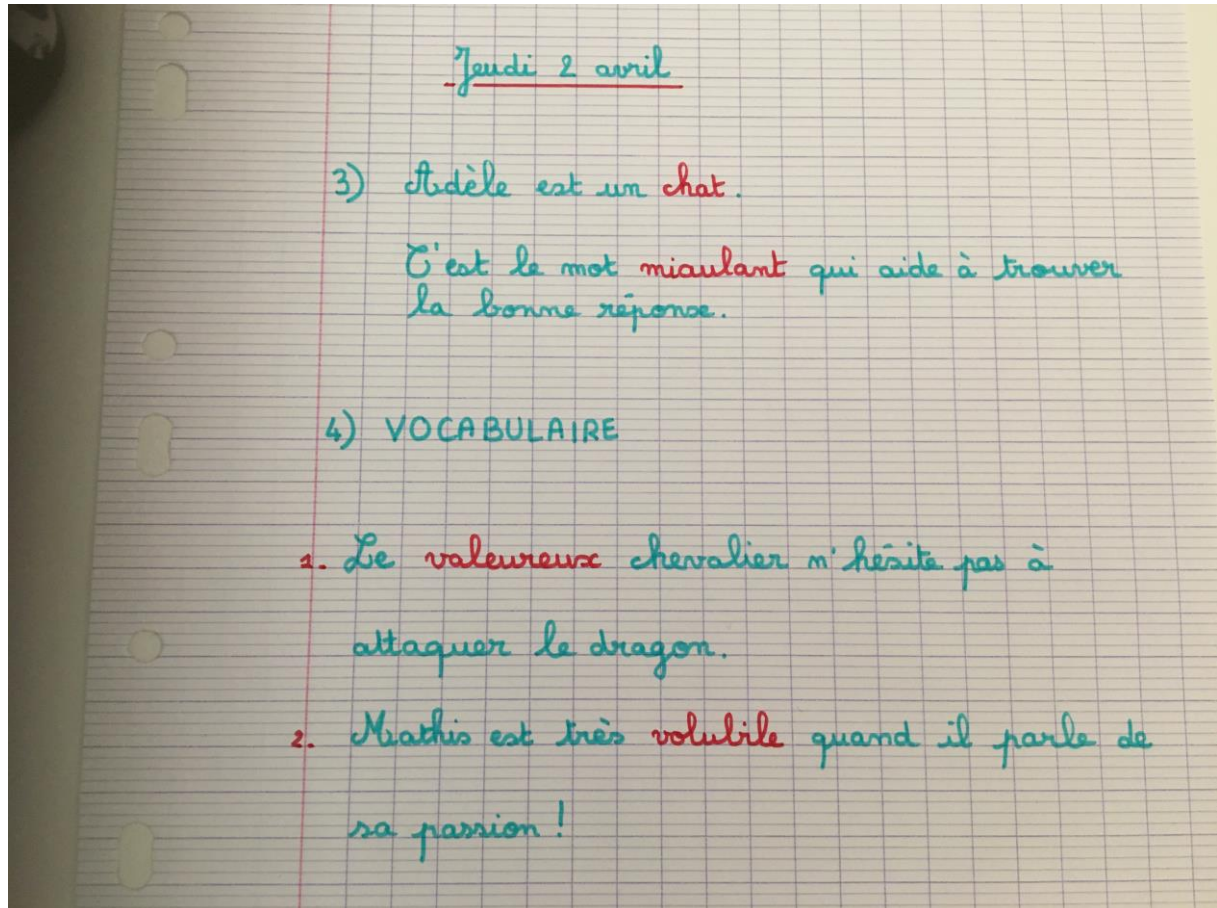 Jeudi 2 avril
3) Adèle est un chat.
C'est le mot miaulant qui aide à trouver
la bonne réponse.
4) VOCABULAIRE
1. Le valeureux chevalier n'hésite pas à
attaquer le dragon.
2. Mathis est très volubile quand il parle de
sa passion !